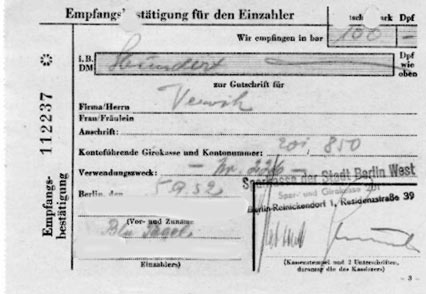 Empfangsbestätigung für den Einzahler
Deutsche Mark Dpf
Wir empfingen in bar 100 –
i. B. DM Hundert Dpf wie oben
zur Gutschrift für
Firma/Herrn
Frau/Fräulein
Anschrift:
Kontoführende Girokasse und Kontonummer: 201, 850
Verwendungszweck: – Nr. 226 –
Sparkasse der Stadt Berlin West
Spar- und Girokasse
Berlin-Reinickendorf 1, Residenzstraße 39
Berlin, den 5 9. 52
(Vor- und Zuname
Einzahlers)
(Kassenstempel und 2 Unterschriften,
darunter die des Kassierers)
– 3 –
Empfangs-
bestätigung
112237